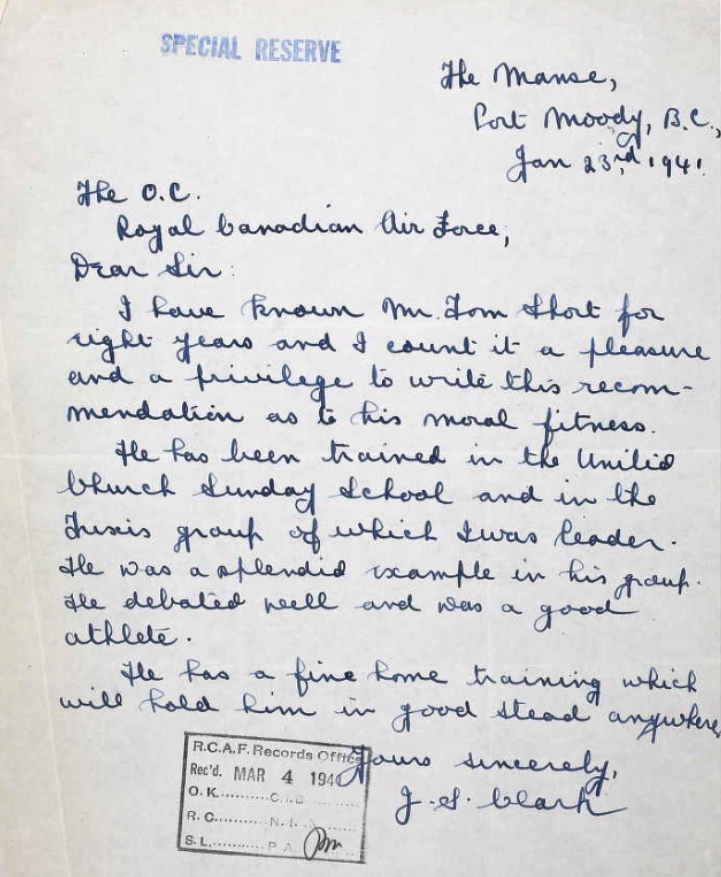 SPECIAL RESERVE
The Manse,
Port Moody, B.C.,
Jan 23rd, 1941.
The O.C.
Royal Canadian Air Force,
Dear Sir:
I have known Mr. Tom Short for
eight years and I count it a pleasure
and a privilege to write this recom-
mendation as to his moral fitness.
He has been trained in the United
Church Sunday School and in the
Tuxis group of which I was leader.
He was a splendid example in his group.
He debated well and was a good
athlete.
He has a fine home training which
will hold him in good stead anywhere
Yours sincerely,
J. S. Clark
R.C.A.F. Records Office
Rec'd. MAR 4 194
O. K..........C.I.D..........
R. C..........N. I..........
S. L..........P A